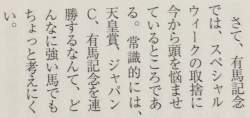 さて、有馬記念
では、スペシャル
ウィークの取捨に
今から頭を悩ませ
ているところであ
る。常識的には、
天皇賞、ジャパン
C、有馬記念を連
勝するなんて、ど
んなに強い馬でも
ちょっと考えにく
い。